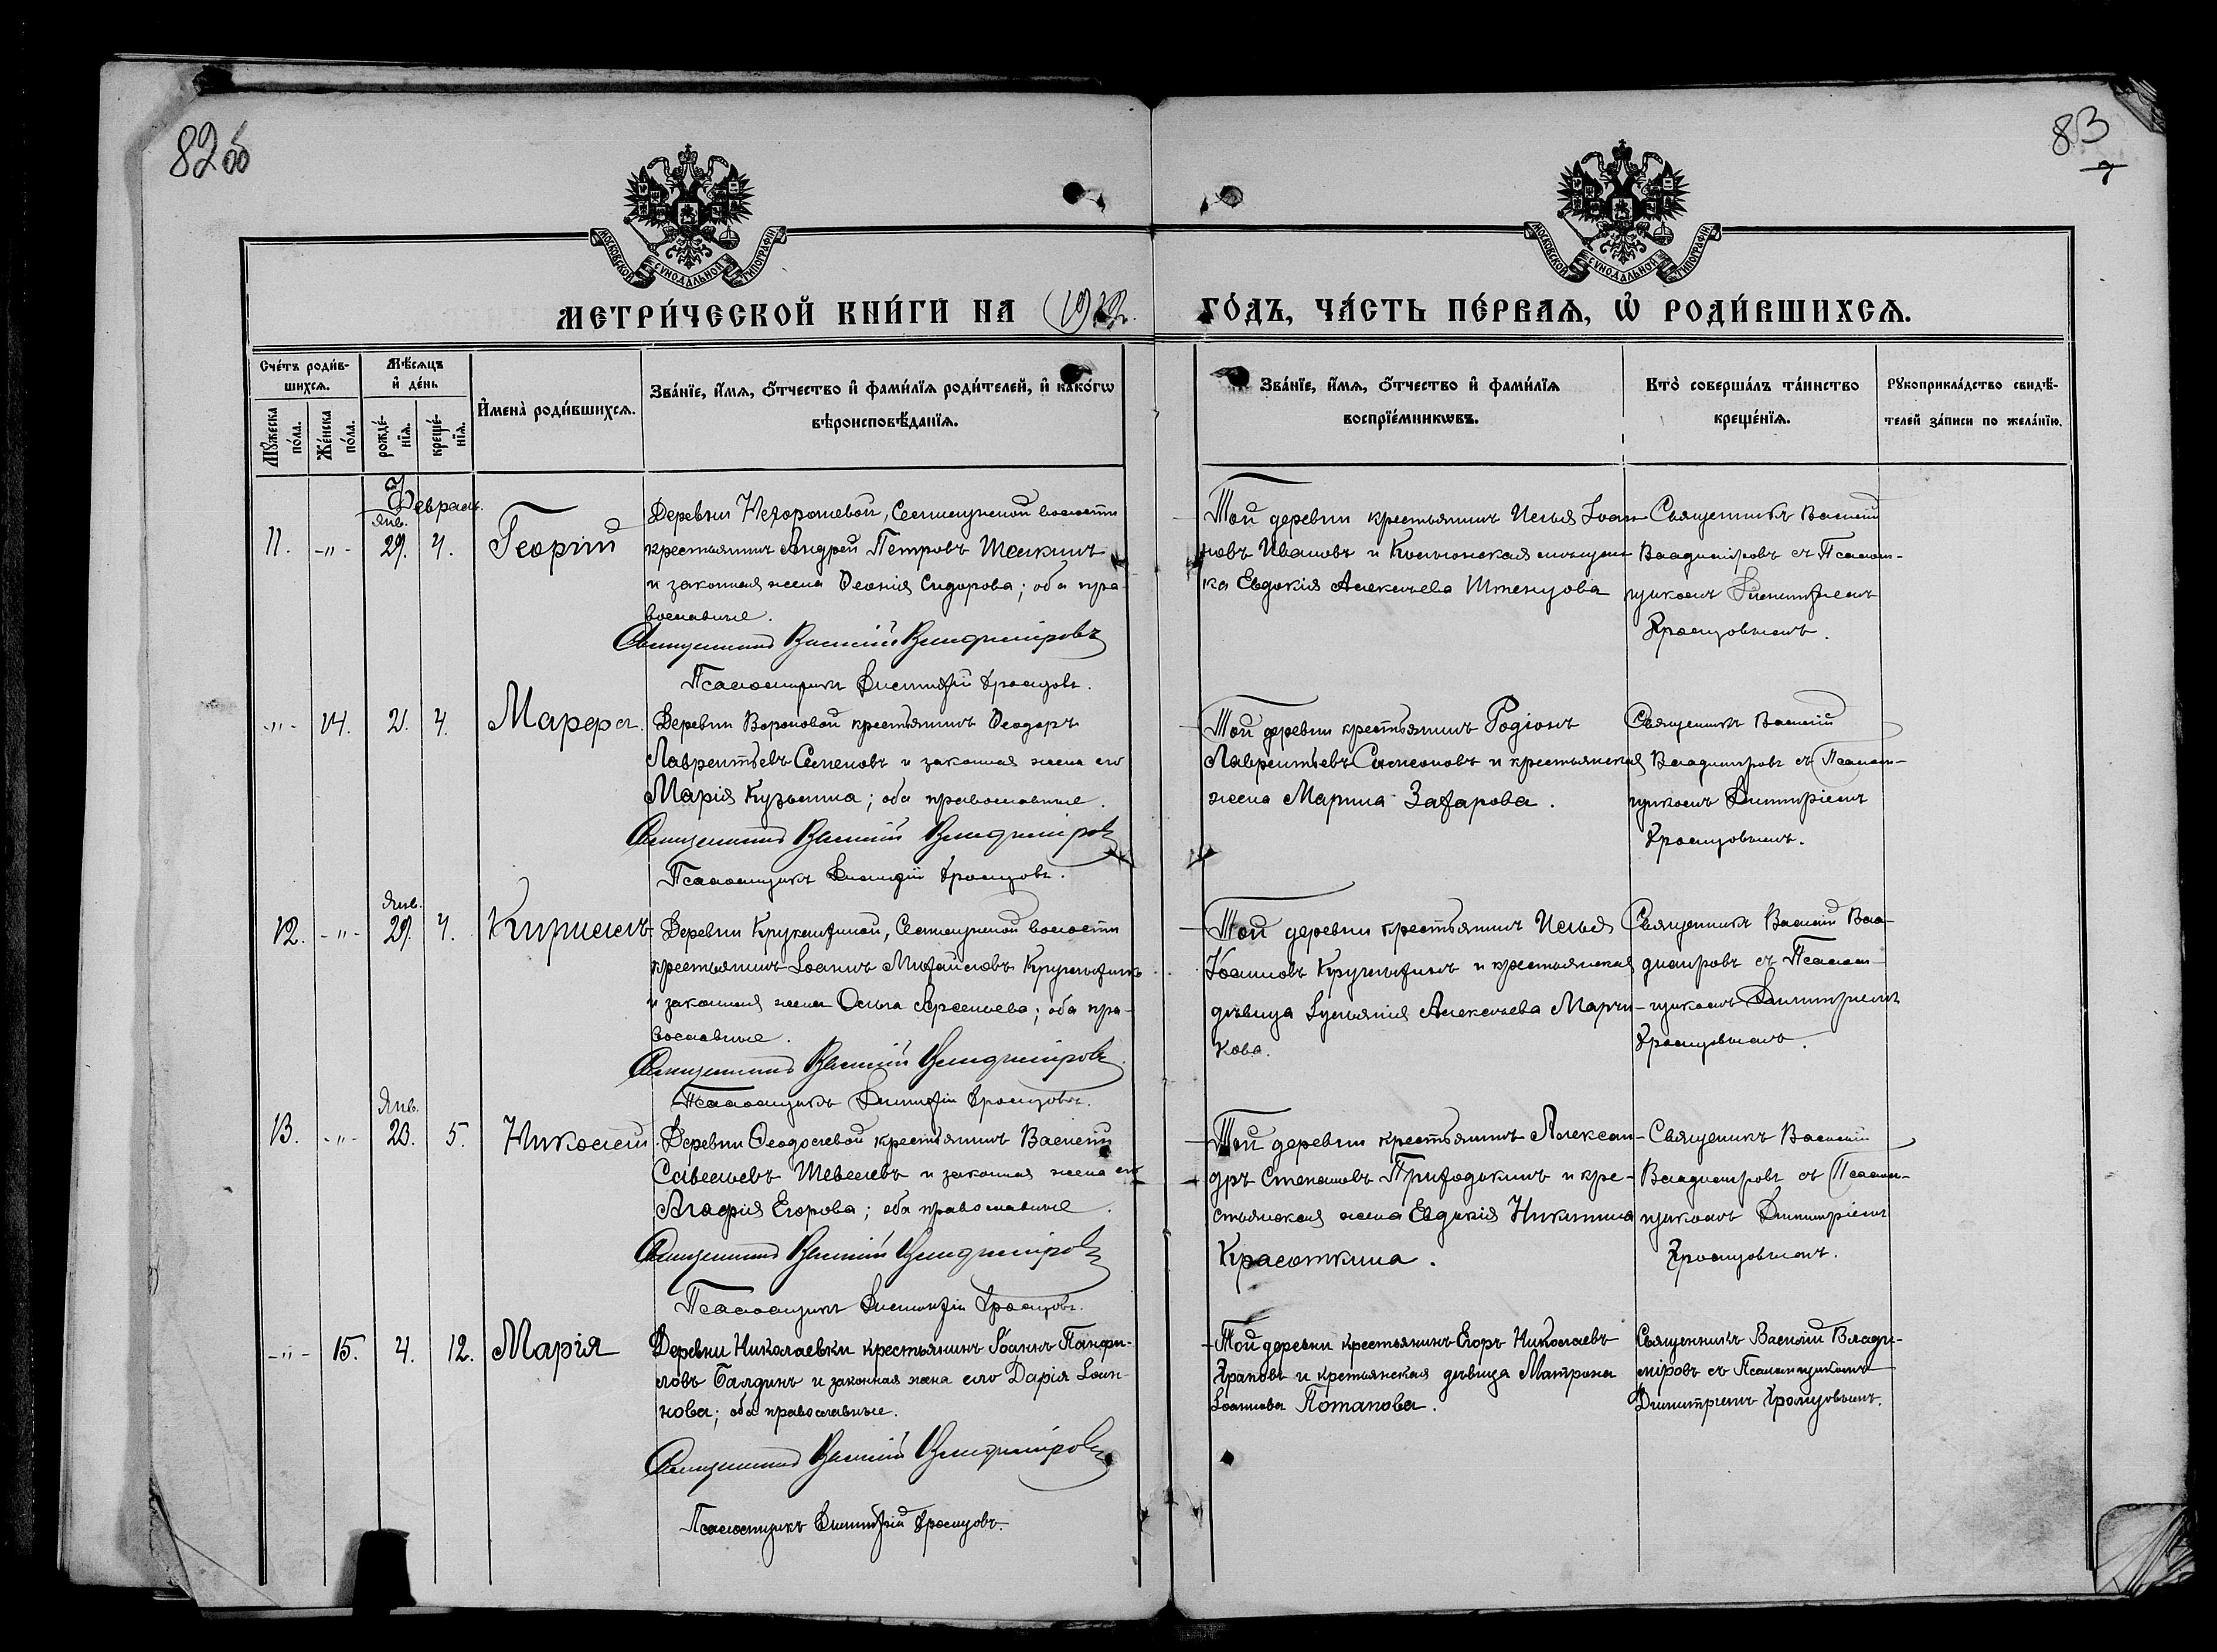 82об
83
7
МОСКОВСКОЙ СѴНОДАЛЬНОЙ ТИПОГРАФІИ
МОСКОВСКОЙ СѴНОДАЛЬНОЙ ТИПОГРАФІИ
МЕТРИ́ЧЕСКОЙ КНИ́ГИ НА
ГО́ДЪ, ЧА́СТЬ ПЕ́РВАЯ, Ѡ҆ РОДИ́ВШИХСЯ.
Сче́тъ роди́в-
шихся.
Мѣ́сяцъ
и҆ де́нь
Мꙋ́жеска по́ла.
Же́нска по́ла.
рожде́-
нїя.
креще́-
нїя.
И҆мена̀ роди́вшихся.
Зва́нїе, и҆́мя, ѻ҆́тчество и҆ фами́лїя роди́телей, и҆ како́гѡ
вѣроисповѣ́данїя.
Зва́нїе, и҆́мя, ѻ҆́тчество и҆ фами́лїя
воспрїе́мникѡвъ.
Кто̀ соверша́лъ та́инство
креще́нїя.
Рꙋкоприкла́дство свидѣ́-
телей за́писи по жела́нїю.
Февраль.
Янв.
11. -"- 29. 4. Георгій
Деревни Нехорошевой, волости
крестьянинъ Андрей Петровъ
и законная жена Ѳеонія Сидорова; оба пра-
вославные.
Священникъ Василій Владиміровъ
Псаломщикъ Димитрій Храмцовъ.
Той деревни крестьянинъ Илья Іоан-
новъ Ивановъ и мѣщан-
ка Евдокія Алексѣева
Священникъ Василій
Владиміровъ съ Псалом-
щикомъ Димитріемъ
Храмцовымъ.
-"- 14. 2. 4. Марфа.
Деревни Вороновой крестьянинъ Ѳеодоръ
Лаврентьевъ Семеновъ и законная жена его
Марія Кузьмина; оба православные.
Священникъ Василій Владиміровъ
Псаломщикъ Димитрій Храмцовъ.
Той деревни крестьянинъ Родіонъ
Лаврентьевъ Симеоновъ и крестьянская
жена Марина Захарова.
Священникъ Василій
Владиміровъ съ Псалом-
щикомъ Димитріемъ
Храмцовымъ.
Янв.
12. -"- 29. 4. Кириллъ
Деревни волости
крестьянинъ Іоаннъ Михайловъ
и законная жена Ольга Арсеньева; оба пра-
вославные.
Священникъ Василій Владиміровъ
Псаломщикъ Димитрій Храмцовъ.
Той деревни крестьянинъ Илья
Іоанновъ и крестьянская
дѣвица Іуліанія Алексѣева Марчи-
кова.
Священникъ Василій Вла-
диміровъ съ Псалом-
щикомъ Димитріемъ
Храмцовымъ.
Янв.
13. -"- 23. 5. Николай.
Деревни Ѳеодосьевой крестьянинъ Василій
Савельевъ Шевелевъ и законная жена его
Агафія Егорова; оба православные.
Священникъ Василій Владиміровъ
Псаломщикъ Димитрій Храмцовъ.
Той деревни крестьянинъ Алексан-
дръ Степановъ Приходкинъ и кре-
стьянская жена Евдокія Никитина
Красоткина.
Священникъ Василій
Владиміровъ съ Псалом-
щикомъ Димитріемъ
Храмцовымъ.
-"- 15. 4. 12. Марія
Деревни Николаевки крестьянинъ Іоаннъ Панфи-
ловъ Балдинъ и законная жена его Дарія Іоан-
нова; оба православные.
Священникъ Василій Владиміровъ
Псаломщикъ Димитрій Храмцовъ.
Той деревни крестьянинъ Егоръ Николаевъ
Храповъ и крестьянская дѣвица Матрона
Іоаннова Потапова.
Священникъ Василій Влади-
міровъ съ Псаломщикомъ
Димитріемъ Храмцовымъ.